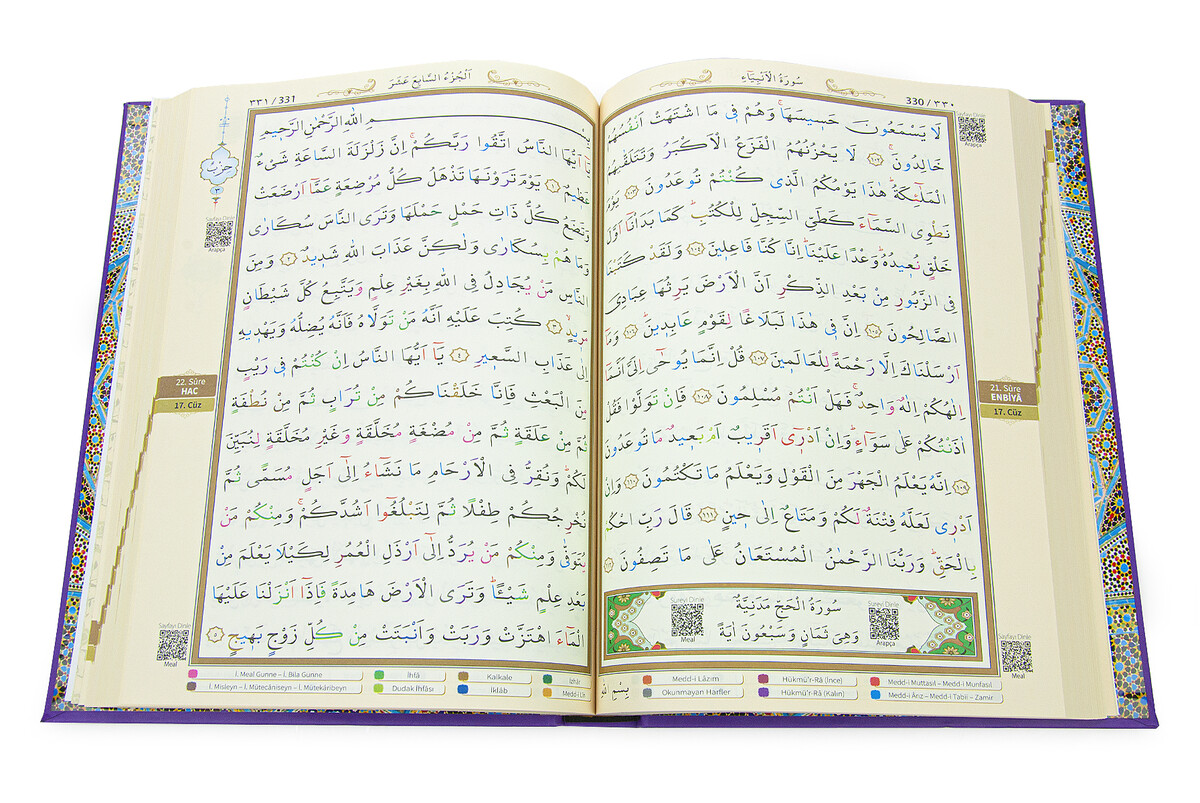 سُورَةُ الْاَنْبِيَاءِ
330 / ٣٣٠
لَا يَسْمَعُونَ حَسٖيسَهَاۚ وَهُمْ فٖي مَا اشْتَهَتْ اَنْفُسُهُمْ
خَالِدُونَۚ ﴿١٠٢﴾ لَا يَحْزُنُهُمُ الْفَزَعُ الْاَكْبَرُ وَتَتَلَقّٰيهُمُ
الْمَلٰٓئِكَةُؕ هٰذَا يَوْمُكُمُ الَّذٖي كُنْتُمْ تُوعَدُونَ ﴿١٠٣﴾ يَوْمَ
نَطْوِي السَّمَٓاءَ كَطَيِّ السِّجِلِّ لِلْكُتُبِؕ كَمَا بَدَأْنَٓا اَوَّلَ
خَلْقٍ نُعٖيدُهُؕ وَعْدًا عَلَيْنَاؕ اِنَّا كُنَّا فَاعِلٖينَ ﴿١٠٤﴾ وَلَقَدْ كَتَبْنَا
فِي الزَّبُورِ مِنْ بَعْدِ الذِّكْرِ اَنَّ الْاَرْضَ يَرِثُهَا عِبَادِيَ
الصَّالِحُونَ ﴿١٠٥﴾ اِنَّ فٖي هٰذَا لَبَلَاغًا لِقَوْمٍ عَابِدٖينَؕ ﴿١٠٦﴾ وَمَٓا
اَرْسَلْنَاكَ اِلَّا رَحْمَةً لِلْعَالَمٖينَ ﴿١٠٧﴾ قُلْ اِنَّمَا يُوحٰٓى اِلَيَّ اَنَّمَٓا
اِلٰهُكُمْ اِلٰهٌ وَاحِدٌۚ فَهَلْ اَنْتُمْ مُسْلِمُونَ ﴿١٠٨﴾ فَاِنْ تَوَلَّوْا فَقُلْ
اٰذَنْتُكُمْ عَلٰى سَوَٓاءٍؕ وَاِنْ اَدْرٖٓي اَقَرٖيبٌ اَمْ بَعٖيدٌ مَا تُوعَدُونَ
﴿١٠٩﴾ اِنَّهُ يَعْلَمُ الْجَهْرَ مِنَ الْقَوْلِ وَيَعْلَمُ مَا تَكْتُمُونَ ﴿١١٠﴾ وَاِنْ
اَدْرٖي لَعَلَّهُ فِتْنَةٌ لَكُمْ وَمَتَاعٌ اِلٰى حٖينٍ ﴿١١١﴾ قَالَ رَبِّ احْكُمْ
بِالْحَقِّؕ وَرَبُّنَا الرَّحْمٰنُ الْمُسْتَعَانُ عَلٰى مَا تَصِفُونَ ﴿١١٢﴾
سُورَةُ الْحَجِّ مَدَنِيَّةٌ
وَهِيَ ثَمَانٍ وَسَبْعُونَ اٰيَةً
Sureyi Dinle
Meal
Sureyi Dinle
Arapça
Sayfayı Dinle
Arapça
21. Sûre
ENBİYÂ
17. Cüz
Sayfayı Dinle
Meal
بِسْمِ اللّٰهِ
Medd-i Lâzım
Hükmü'r-Râ (İnce)
Medd-i Muttasıl – Medd-i Munfasıl
Okunmayan Harfler
Hükmü'r-Râ (Kalın)
Medd-i Ârız – Medd-i Tabii – Zamir
٣٣١ / 331
اَلْجُزْءُ السَّابِعَ عَشَرَ
حزب
٣
بِسْمِ اللّٰهِ الرَّحْمٰنِ الرَّحٖيمِ
يَٓا اَيُّهَا النَّاسُ اتَّقُوا رَبَّكُمْۚ اِنَّ زَلْزَلَةَ السَّاعَةِ شَيْءٌ
عَظٖيمٌ ﴿١﴾ يَوْمَ تَرَوْنَهَا تَذْهَلُ كُلُّ مُرْضِعَةٍ عَمَّٓا اَرْضَعَتْ
وَتَضَعُ كُلُّ ذَاتِ حَمْلٍ حَمْلَهَا وَتَرَى النَّاسَ سُكَارٰى
وَمَا هُمْ بِسُكَارٰى وَلٰكِنَّ عَذَابَ اللّٰهِ شَدٖيدٌ ﴿٢﴾ وَمِنَ
النَّاسِ مَنْ يُجَادِلُ فِي اللّٰهِ بِغَيْرِ عِلْمٍ وَيَتَّبِعُ كُلَّ شَيْطَانٍ
مَرٖيدٍۙ ﴿٣﴾ كُتِبَ عَلَيْهِ اَنَّهُ مَنْ تَوَلَّاهُ فَاَنَّهُ يُضِلُّهُ وَيَهْدٖيهِ
اِلٰى عَذَابِ السَّعٖيرِ ﴿٤﴾ يَٓا اَيُّهَا النَّاسُ اِنْ كُنْتُمْ فٖي رَيْبٍ
مِنَ الْبَعْثِ فَاِنَّا خَلَقْنَاكُمْ مِنْ تُرَابٍ ثُمَّ مِنْ نُطْفَةٍ
ثُمَّ مِنْ عَلَقَةٍ ثُمَّ مِنْ مُضْغَةٍ مُخَلَّقَةٍ وَغَيْرِ مُخَلَّقَةٍ لِنُبَيِّنَ
لَكُمْؕ وَنُقِرُّ فِي الْاَرْحَامِ مَا نَشَٓاءُ اِلٰٓى اَجَلٍ مُسَمًّى ثُمَّ
نُخْرِجُكُمْ طِفْلًا ثُمَّ لِتَبْلُغُٓوا اَشُدَّكُمْۚ وَمِنْكُمْ مَنْ
يُتَوَفّٰى وَمِنْكُمْ مَنْ يُرَدُّ اِلٰٓى اَرْذَلِ الْعُمُرِ لِكَيْلَا يَعْلَمَ مِنْ
بَعْدِ عِلْمٍ شَيْـًٔاؕ وَتَرَى الْاَرْضَ هَامِدَةً فَاِذَٓا اَنْزَلْنَا عَلَيْهَا
الْمَٓاءَ اهْتَزَّتْ وَرَبَتْ وَاَنْبَتَتْ مِنْ كُلِّ زَوْجٍ بَهٖيجٍ ﴿٥﴾
Sayfayı Dinle
Arapça
22. Sûre
HAC
17. Cüz
Sayfayı Dinle
Meal
İ. Meal Gunne – İ. Bila Gunne
İhfâ
Kalkale
İzhâr
İ. Misleyn – İ. Mütecâniseyn – İ. Mütekâribeyn
Dudak İhfâsı
İklâb
Medd-i Lîn